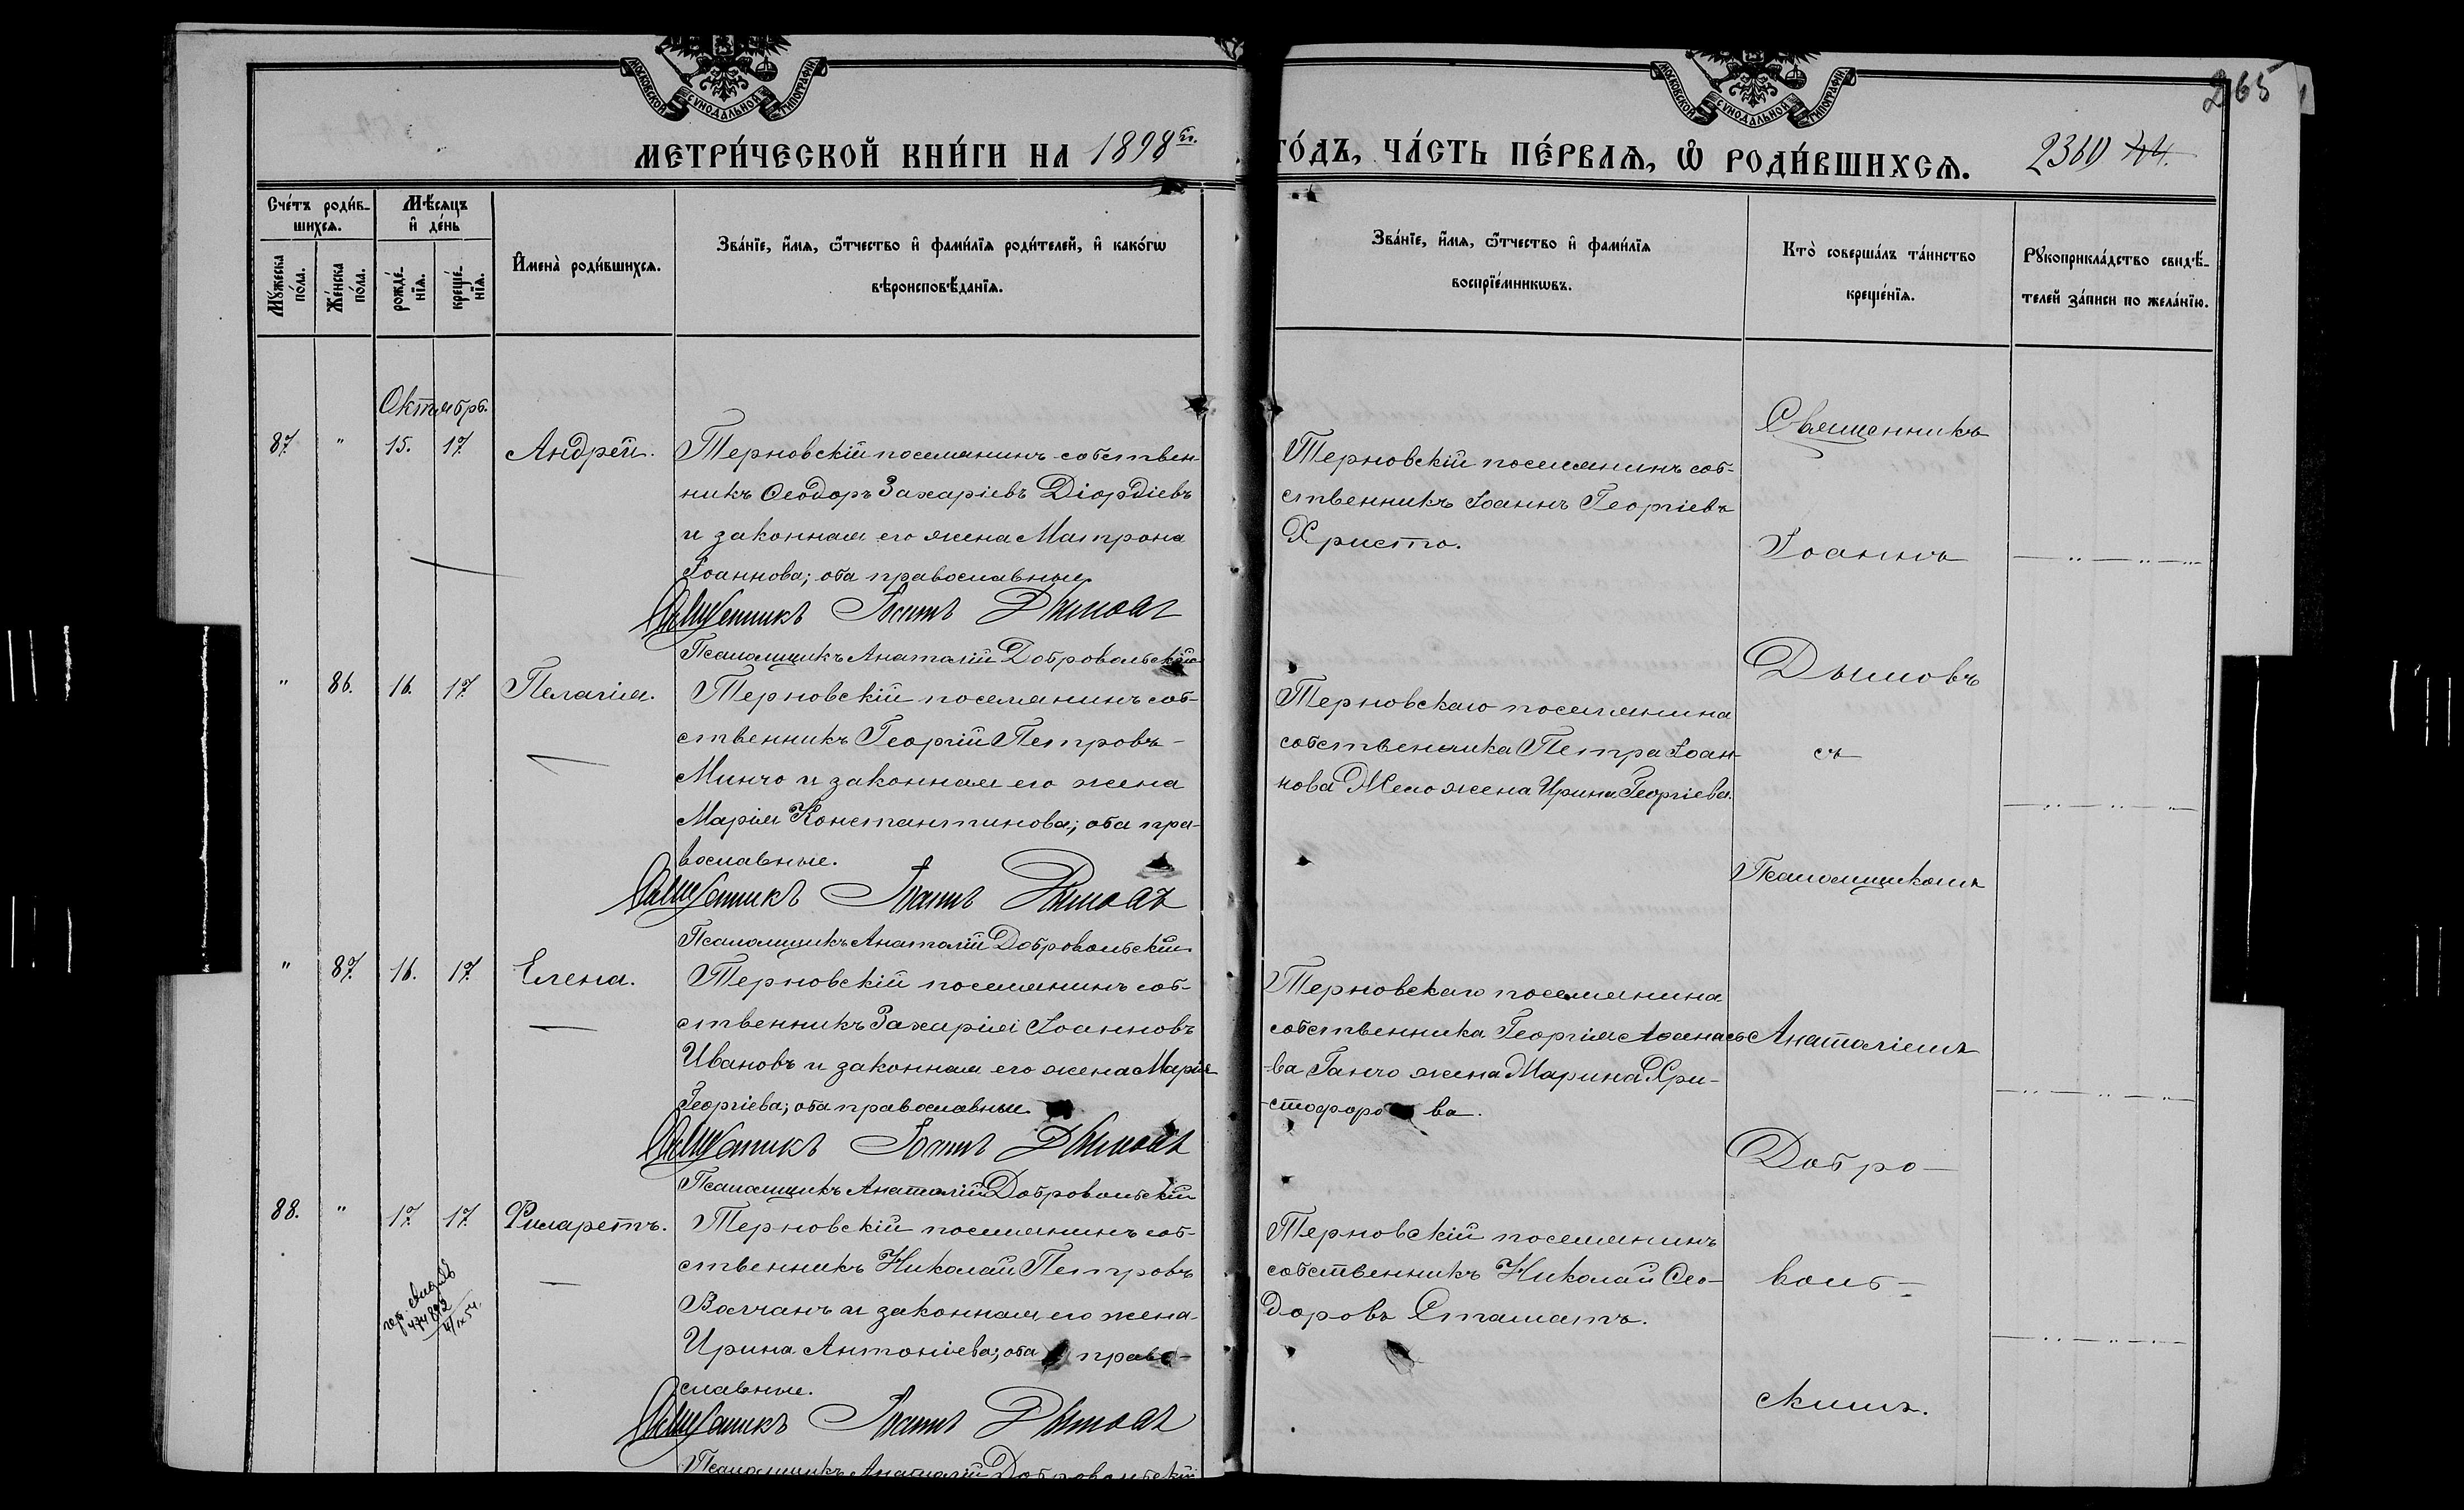 МОСКОВСКОЙ СѴНОДАЛЬНОЙ ТИПОГРАФІИ
МОСКОВСКОЙ СѴНОДАЛЬНОЙ ТИПОГРАФІИ
265
МЕТРИ́ЧЕСКОЙ КНИ́ГИ НА 1898 г.
ГО́ДЪ, ЧА́СТЬ ПЕ́РВАѦ, Ѡ҆ РОДИ́ВШИХСѦ.
2360 44.
Сче́тъ роди́в-
шихсѧ.
Мꙋ́жеска
по́ла.
Же́нска
по́ла.
Мѣ́сѧцъ
и҆ де́нь
рожде́-
нїѧ.
креще́-
нїѧ.
И҆мена̀ роди́вшихсѧ.
Зва́нїе, и҆́мѧ, ѻ҆́тчество и҆ фами́лїѧ роди́телей, и҆ како́гѡ
вѣроисповѣ́данїѧ.
Зва́нїе, и҆́мѧ, ѻ҆́тчество и҆ фами́лїѧ
воспрїе́мникѡвъ.
Кто̀ соверша́лъ та́инство
креще́нїѧ.
Рꙋкоприкла́дство свидѣ́-
телей за́писи по жела́нїю.
Октябрь.
87. " 15. 17. Андрей.
Терновскій поселянинъ собствен-
никъ Ѳеодоръ Захаріевъ Діордіевъ
и законная его жена Матрона
Іоаннова; оба православные.
Священникъ Іоаннъ Дымовъ
Псаломщикъ Анатолій Добровольскій
Терновскій поселянинъ соб-
ственникъ Іоаннъ Георгіевъ
Христо.
" 86. 16. 17. Пелагія.
Терновскій поселянинъ соб-
ственникъ Георгій Петровъ
Минчо и законная его жена
Марія Константинова; оба пра-
вославные.
Священникъ Іоаннъ Дымовъ
Псаломщикъ Анатолій Добровольскій
Терновскаго поселянина
собственника Петра Іоан-
нова жена Ирина Георгіева.
" 87. 16. 17. Елена.
Терновскій поселянинъ соб-
ственникъ Захарій Іоанновъ
Ивановъ и законная его жена Марія
Георгіева; оба православные.
Священникъ Іоаннъ Дымовъ
Псаломщикъ Анатолій Добровольскій
Терновскаго поселянина
собственника Георгія Аѳанасье
ва Ганчо жена Марина Хри-
стофорова.
88. " 17. 17. Филаретъ.
Терновскій поселянинъ соб-
ственникъ Николай Петровъ
Волчанъ и законная его жена
Ирина Антоніева; оба право-
славные.
Священникъ Іоаннъ Дымовъ
Псаломщикъ Анатолій Добровольскій
Терновскій поселянинъ
собственникъ Николай Ѳео-
доровъ Стаматъ.
Священникъ
Іоаннъ
Дымовъ
съ
Псаломщикомъ
Анатоліемъ
Добро-
воль-
скимъ.